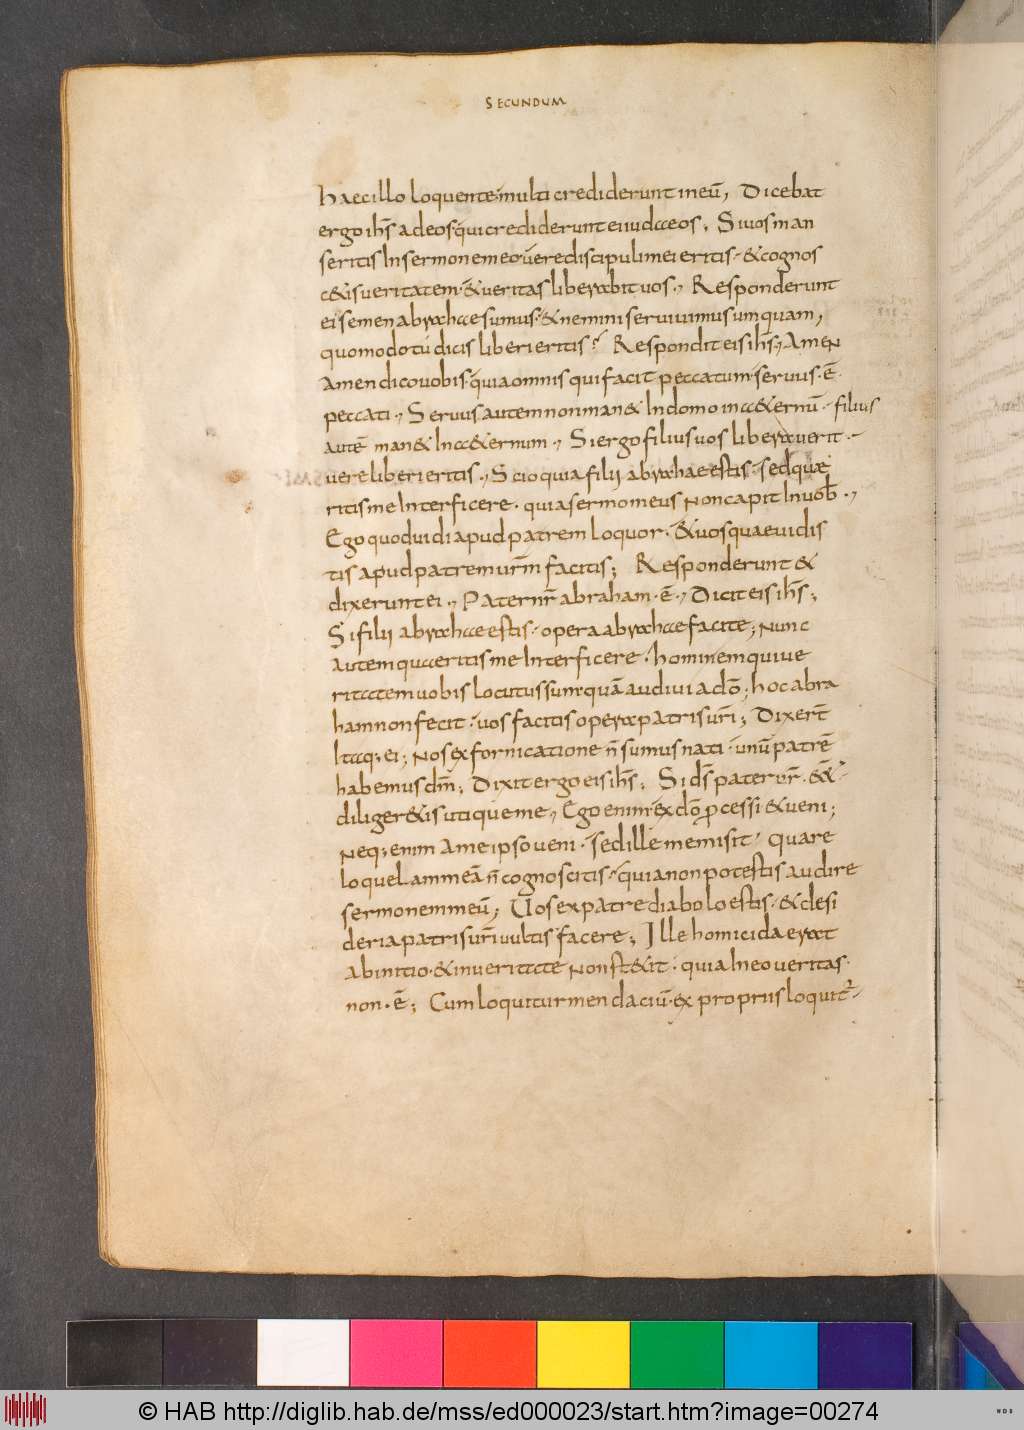 SECUNDUM
haec illo loquente; multi crediderunt in eū, Dicebat
ergo ihs̄ ad eos qui crediderunt ei iudaeos; Si uos man
seritis In sermone meo uere discipuli mei eritis. & cognos
c&is ueritatem. & ueritas liberabit uos., Responderunt
ei semen abrahae sumus. & nemini seruiuimus umquam,
quomodo tu dicis liberi eritis? Respondit eis ihs̄., Amen
Amen dico uobis. quia omnis qui facit peccatum. seruus. ē.
peccati., Seruus autem non man& In domo in aeternū. filius
autē man& In aeternum., Si ergo filius uos liberauerit.
uere liberi eritis., Scio quia filii abrahae estis. sed quae
ritis me Interficere. quia sermo meus Non capit In uob̄.,
Ego quod uidi apud patrem loquor. & uos quae uidis
tis apud patrem urm̄ facitis; Responderunt &
dixerunt ei., Pater nr̄ abraham. ē., Dicit eis ihs̄;
Si filii abrahae estis. opera abrahae facite; Nunc
Autem quaeritis me Interficere. hominem qui ue
ritatem uobis locutus sum. quā audiui a dō; hoc abra
ham non fecit. uos facitis opera patris uri̅; Dixert̄
Itaq; ei; Nos ex fornicatione n̄ sumus nati. unū patrē
habemus dm̄; Dixit ergo eis ihs̄; Si ds̄ pater ur̄. ēē.
diliger&is utique me, Ego enim ex dō p̄cessi & ueni;
Neq; enim A me ipso ueni. sed ille me misit. quare
loquelam meā n̄ cognoscitis. quia non potestis audire
sermonem meū; Uos ex patre diabolo estis. & desi
deria patris uri̅ uultis facere; Ille homicida erat
ab initio. & in ueritate Non st&it. quia In eo ueritas.
non. ē; Cum loquitur mendaciū. ex propriis loquit̄.
© HAB http://diglib.hab.de/mss/ed000023/start.htm?image=00274